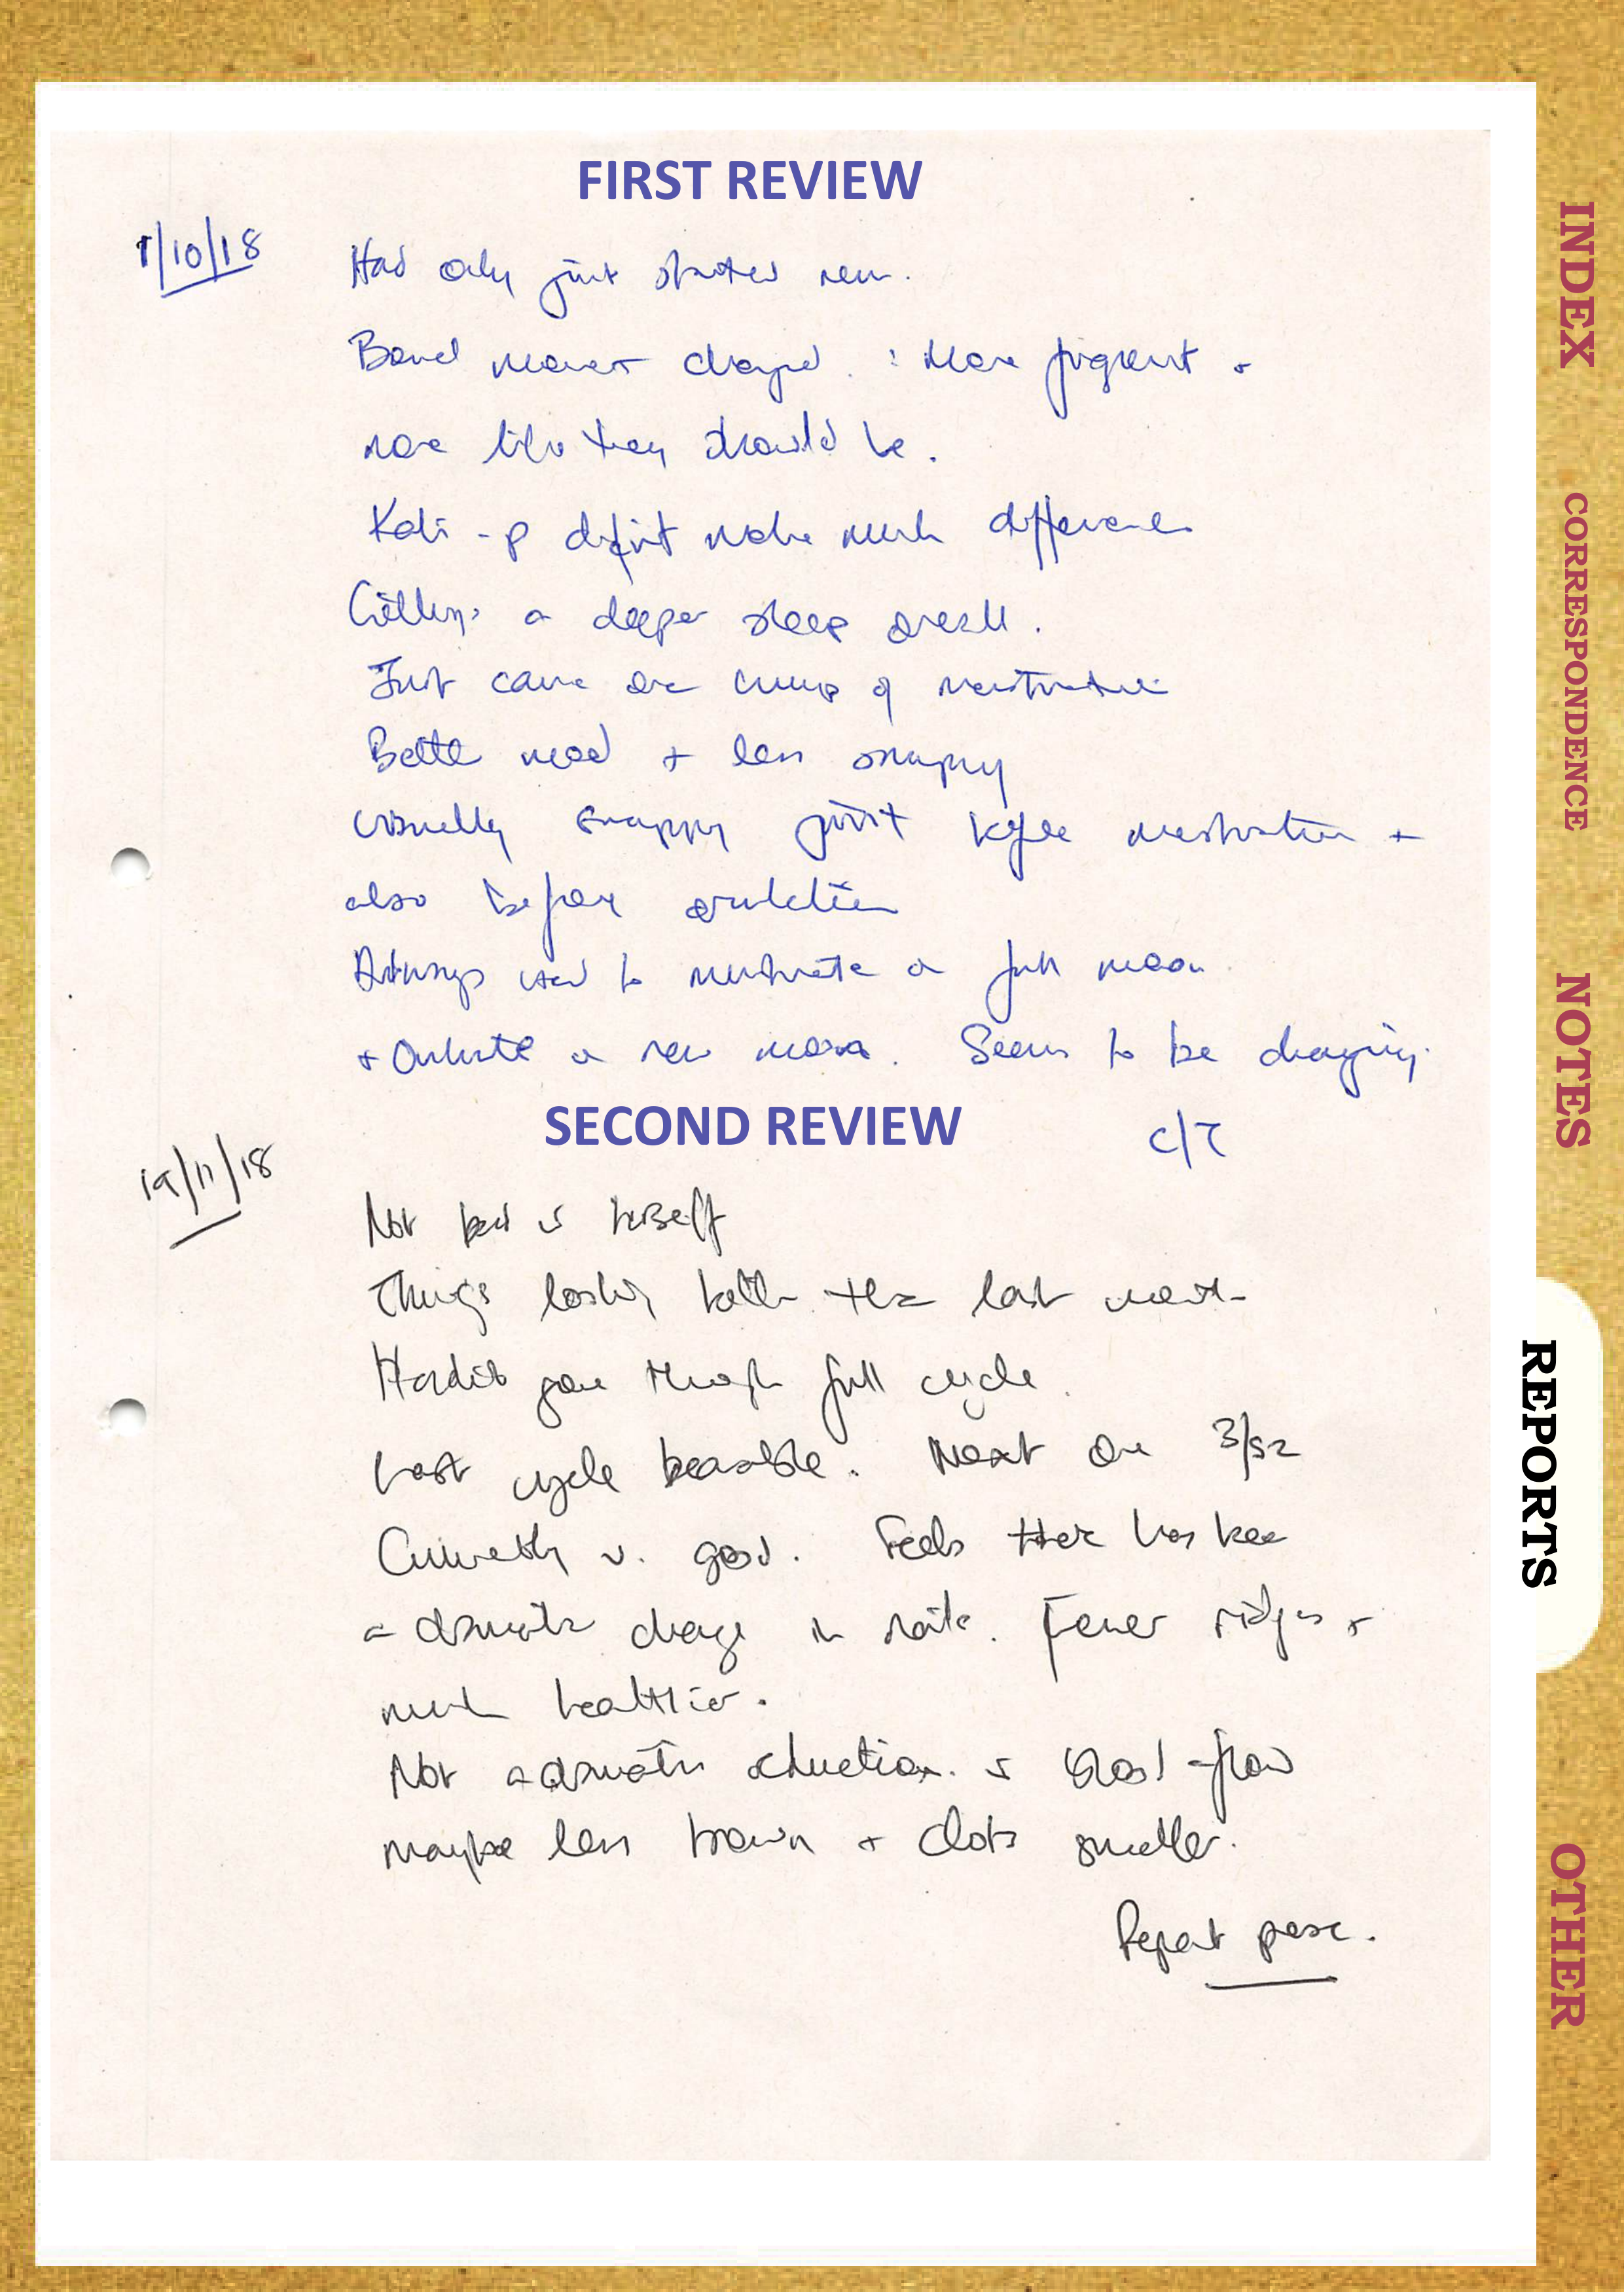 FIRST REVIEW
1/10/18
Had only just started new.
Bowel movement changed. : More frequent +
more like they should be.
Kali-p didn't make much difference
Getting a deeper sleep overall.
Just came one cramp of menstruation
Better mood + less snappy
Usually snappy just before menstruation +
also before ovulation
Always used to menstruate on full moon
+ Ovulate on new moon. Seems to be changing.
SECOND REVIEW
c/T
19/11/18
Not bad in herself
Things looking better than last month
Hadn't gone through full cycle.
Last cycle bearable. Next one 3/52
Currently v. good. Feels there has been
a dramatic change in nails. Fewer ridges +
much healthier.
Not a dramatic reduction in blood-flow
maybe less brown + clots smaller.
Repeat presc.
INDEX
CORRESPONDENCE
NOTES
REPORTS
OTHER